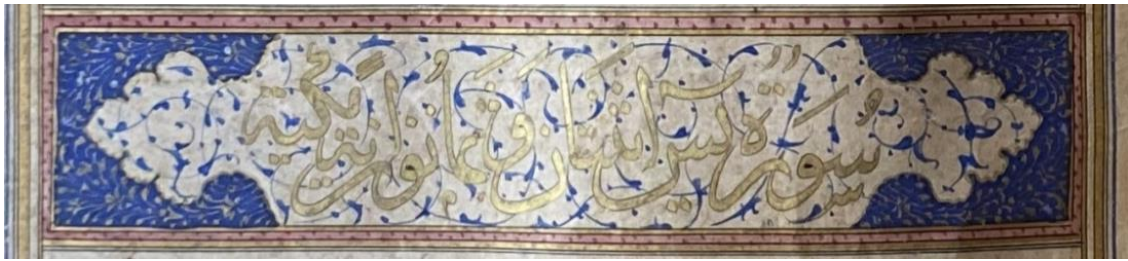 سُورَةُ يٰسٓ اِثْنَتَانِ وَ ثَمَانُونَ اٰيَةً مَكِّيَّة